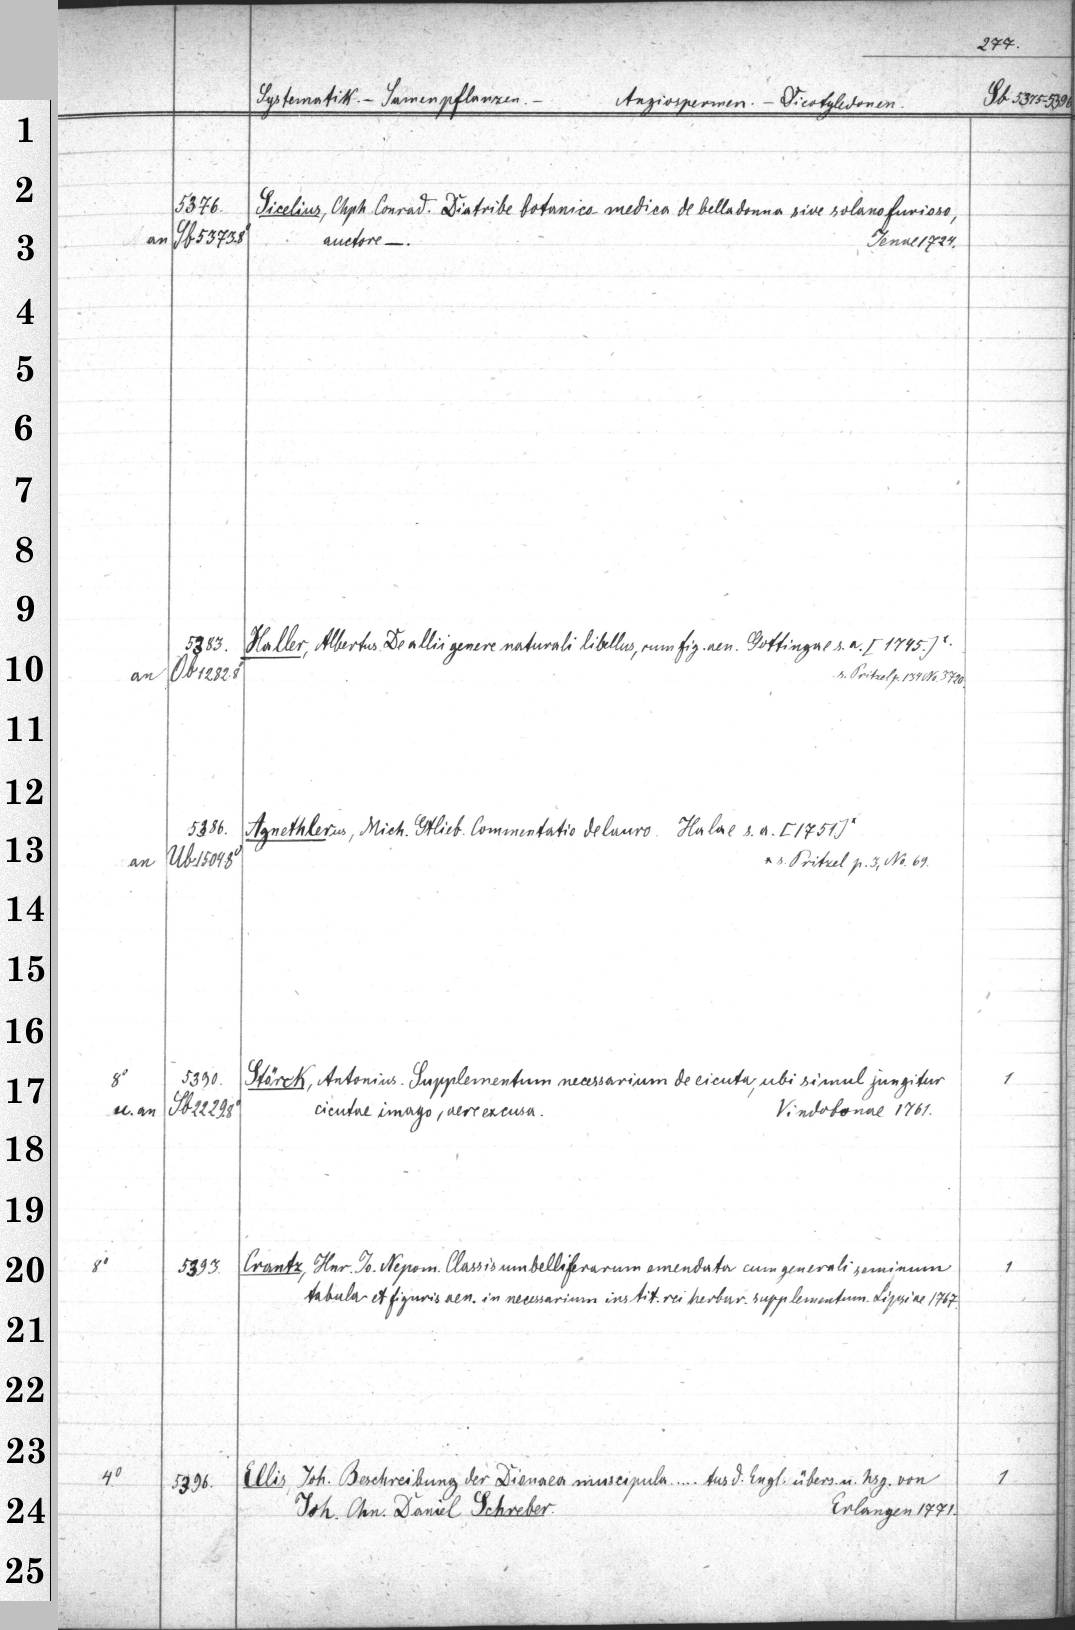 277.
Systematik. – Samenpflanzen. – Angiospermen. – Dicotyledonen. Sb 5375-5396
1
2
5376. Sicelius, Chph. Conrad. Diatribe botanico-medica de belladonna sive solano furioso,
3
an Sb 5373.8° auctore —. Jenae 1724.
4
5
6
7
8
9
5383. Haller, Albertus. De allii genere naturali libellus, cum fig. aen. Gottingae s. a. [1745.]x
10
an Ob 1282.8° s. Pritzel p. 134 No. 3720.
11
12
5386. Agnethlerus, Mich. Gttlieb. Commentatio de lauro. Halae s. a. [1751]x
13
an Ub 1504.8° x s. Pritzel p. 3, No. 69.
14
15
16
8° 5390. Störck, Antonius. Supplementum necessarium de cicuta, ubi simul jungitur 1
17
u. an Sb 2229.8° cicutae imago, aere excusa. Vindobonae 1761.
18
19
20
8° 5393. Crantz, Hnr. Jo. Nepom. Classis umbelliferarum emendata cum generali seminum 1
tabula et figuris aen. in necessarium instit. rei herbar. supplementum. Lipsiae 1767.
21
22
23
4° 5396. Ellis, Joh. Beschreibung der Dionaea muscipula..... Aus d. Engl. übers. u. hsg. von 1
24
Joh. Chn. Daniel Schreber. Erlangen 1771.
25